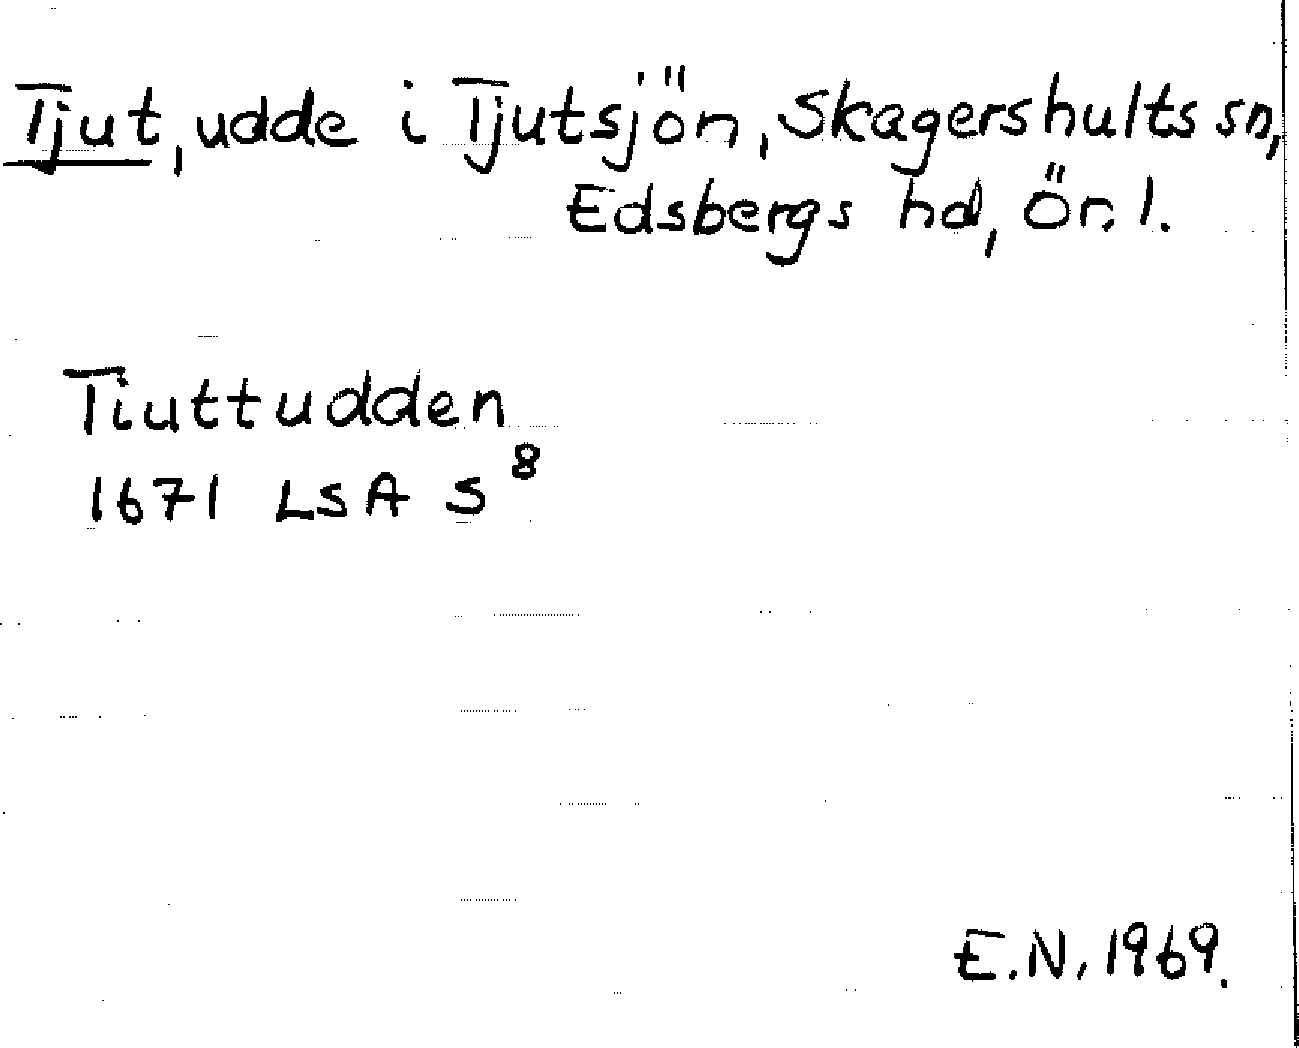 Tjut, udde i Tjutsjön, Skagershults sn,
Edsbergs hd, Ör. l.
Tiuttudden
1671 LSA S⁸
E.N. 1969.